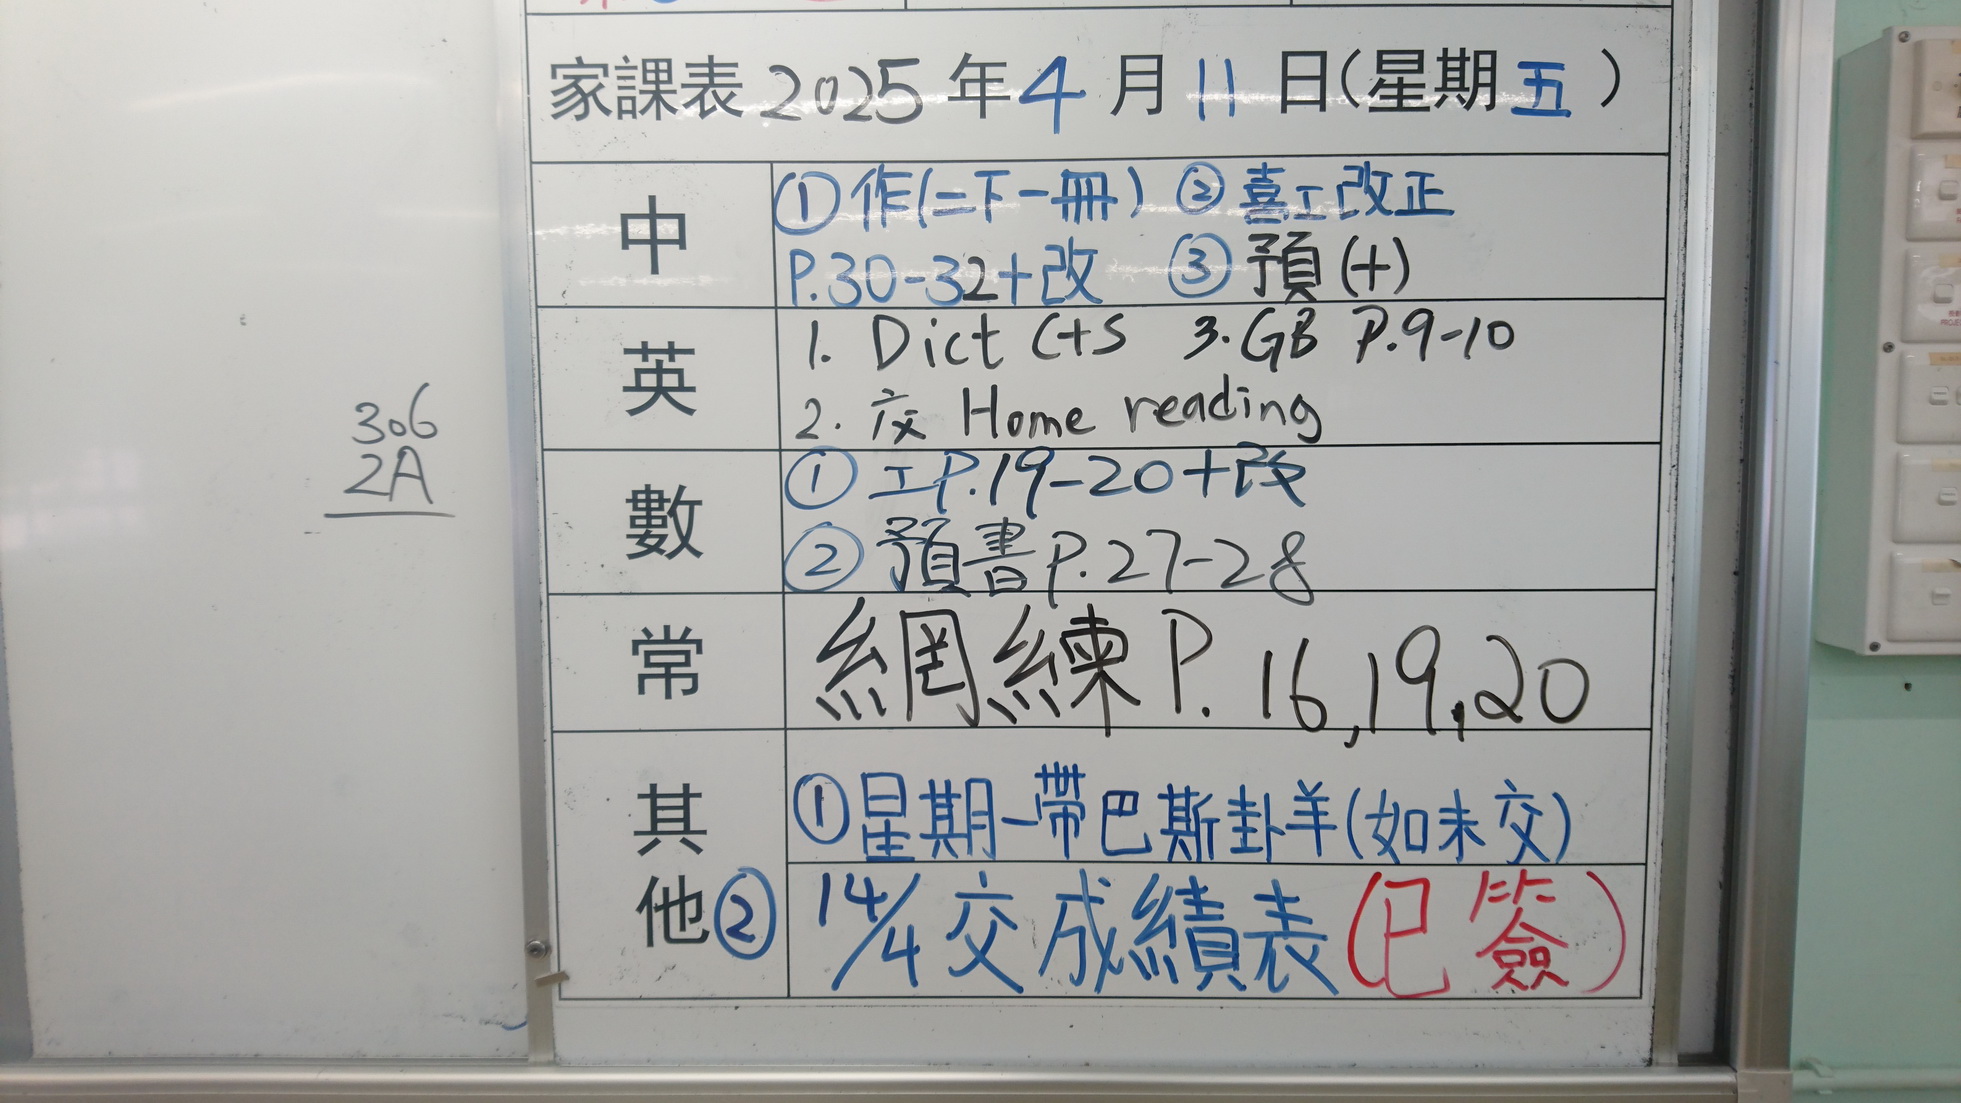 家課表 2025 年 4 月 11 日(星期五)
中
① 作(二下一冊) ② 喜工改正
P.30-32+改 ③ 預(+)
英
1. Dict C+S 3. GB P.9-10
2. 交 Home reading
數
① 工P.19-20+改
② 預書P.27-28
常
網練P. 16,19,20
其他
①星期一帶巴斯卦羊(如未交)
② 14/4交成績表(已簽)
306
2A